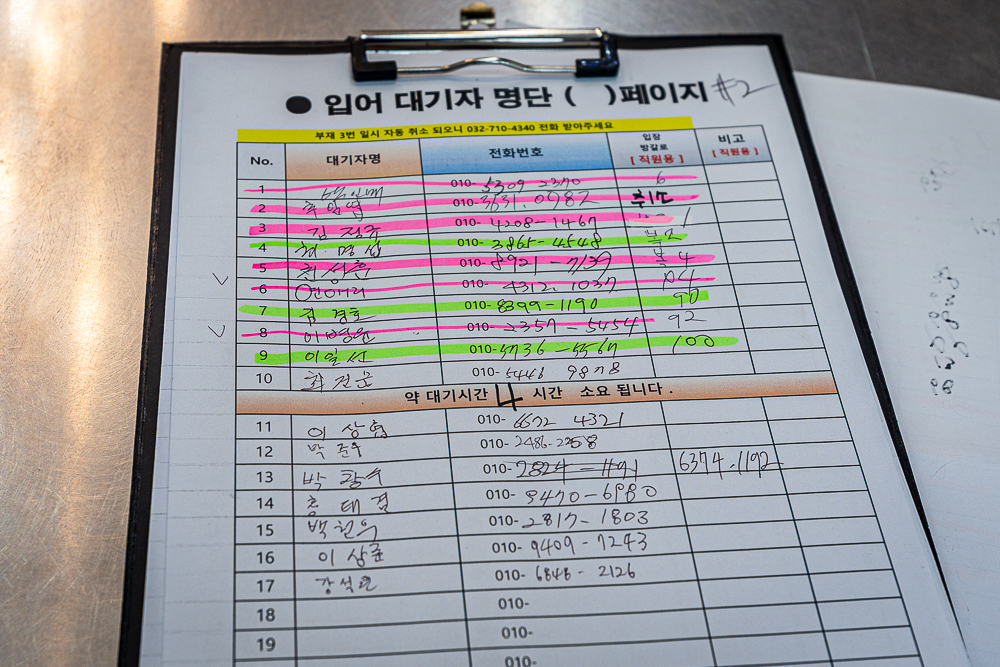 ● 입어 대기자 명단 ( )페이지 #2
부재 3번 일시 자동 취소 되오니 032-710-4340 전화 받아주세요
No. 대기자명 전화번호 입장 방갈로 [직원용] 비고 [직원용]
1 010-5309 2370 6
2 010-3631.0982 취소
3 김정우 010-4208-1467
4 최명섭 010-3865-4548 북2
5 010-8921-7139 북4
6 010-4312.1037
7 김경호 010-8399-1190 90
8 이병원 010-2357-5454 92
9 이일선 010-5736-5567 100
10 최진순 010-5446 9878
약 대기시간 4 시간 소요 됩니다.
11 이상협 010-6672 4321
12 박준우 010-2486-2258
13 박광수 010-2824-1191 6374.1192
14 홍태결 010-9470-6980
15 백현우 010-2817-1803
16 이상준 010-9409-7243
17 강석현 010-6848-2126
18 010-
19 010-
010-